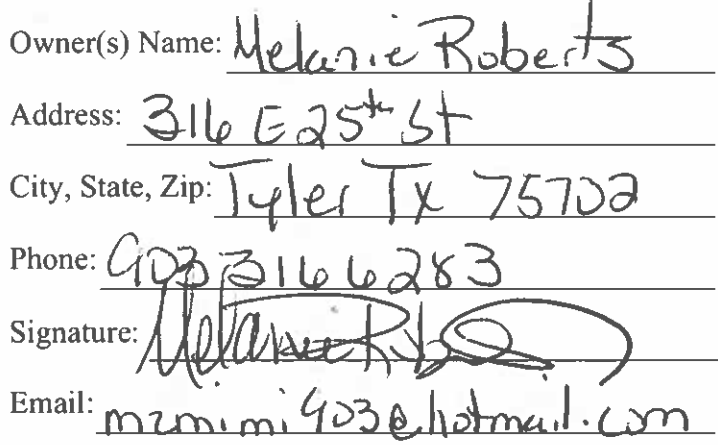 Owner(s) Name: Melanie Roberts
Address: 316 E 25th St
City, State, Zip: Tyler Tx 75702
Phone: 903 316 6283
Signature: Melanie Rob
Email: mzmimi903@hotmail.com